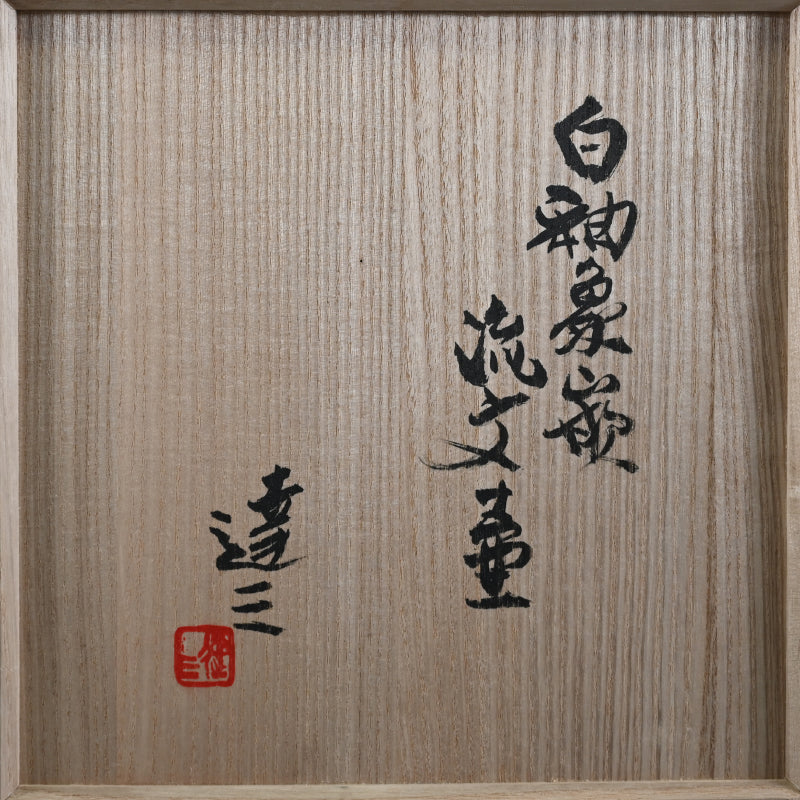 白釉象嵌
流文壷
達三